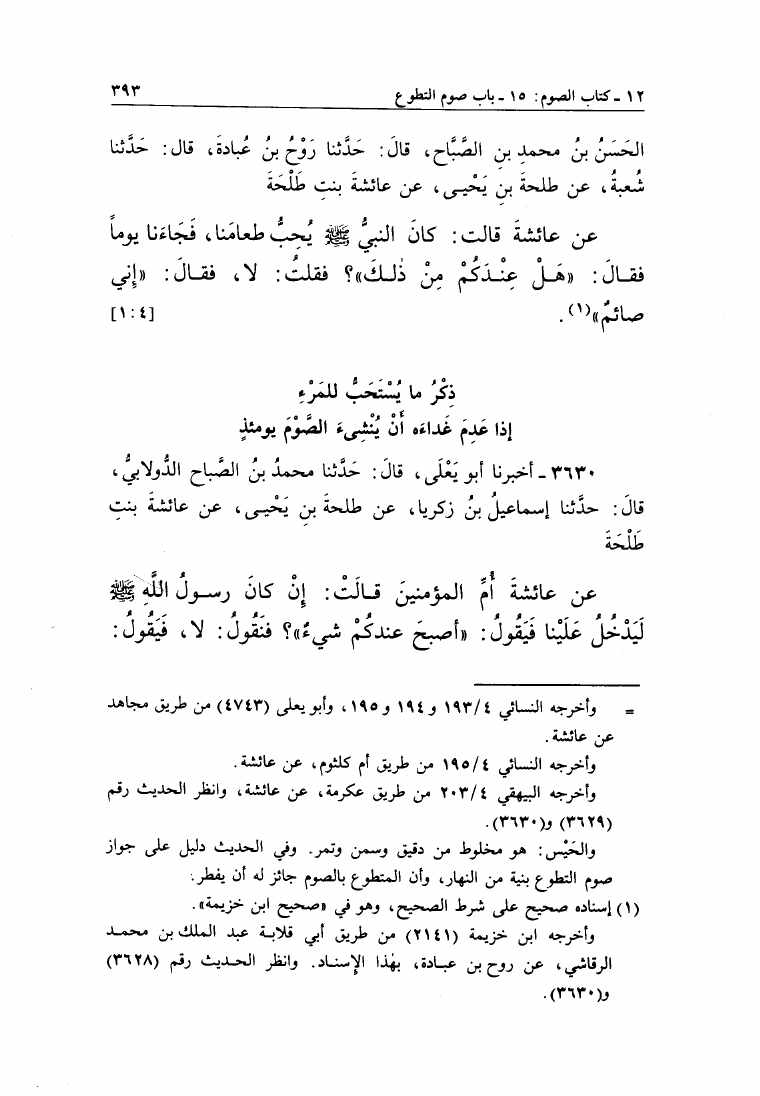 ١٢ - كتاب الصوم: ١٥ - باب صوم التطوع ٣٩٣
الحَسَنُ بنُ محمدِ بنِ الصَّبَّاح، قالَ: حَدَّثنا رَوْحُ بنُ عُبادةَ، قال: حَدَّثنا
شُعبةُ، عن طلحةَ بنِ يَحْيـى، عن عائشةَ بنتِ طَلْحَةَ
عن عائشةَ قالت: كانَ النبيُّ ﷺ يُحِبُّ طعامَنا، فَجَاءَنا يوماً
فقـالَ: «هَـلْ عِنْـدَكُمْ مِنْ ذٰلـكَ»؟ فقلتُ: لا، فقـالَ: «إني
صائمٌ»(١). [٤:١]
ذِكْرُ ما يُسْتَحَبُّ للمَرْءِ
إذا عَدِمَ غَداءَه أَنْ يُنْشِىءَ الصَّوْمَ يومئذٍ
٣٦٣٠ - أخبرنا أبو يَعْلَى، قالَ: حَدَّثنا محمدُ بنُ الصَّباح الدُّولابيُّ،
قالَ: حدَّثنا إسماعيلُ بنُ زكريا، عن طلحةَ بنِ يَحْيـى، عن عائشةَ بنتِ
طَلْحَةَ
عن عائشةَ أُمِّ المؤمنينَ قـالَتْ: إِنْ كانَ رسـولُ اللَّهِ ﷺ
لَيَدْخُلُ عَلَيْنا فَيَقُولُ: «أصبحَ عندكُمْ شيءٌ»؟ فنَقُولُ: لا، فَيَقُولُ:
= وأخرجه النسائي ١٩٣/٤ و ١٩٤ و ١٩٥، وأبو يعلى (٤٧٤٣) من طريق مجاهد
عن عائشة.
وأخرجه النسائي ١٩٥/٤ من طريق أم كلثوم، عن عائشة.
وأخرجه البيهقي ٢٠٣/٤ من طريق عكرمة، عن عائشة، وانظر الحديث رقم
(٣٦٢٩) و(٣٦٣٠).
والحَيْس: هو مخلوط من دقيق وسمن وتمر. وفي الحديث دليل على جواز
صوم التطوع بنية من النهار، وأن المتطوع بالصوم جائز له أن يفطر.
(١) إسناده صحيح على شرط الصحيح، وهو في «صحيح ابن خزيمة».
وأخرجه ابن خزيمة (٢١٤١) من طريق أبي قلابـة عبد الملك بن محمـد
الرقاشي، عن روح بن عبـادة، بهٰذا الإسنـاد. وانظر الحـديث رقم (٣٦٢٨)
و(٣٦٣٠).